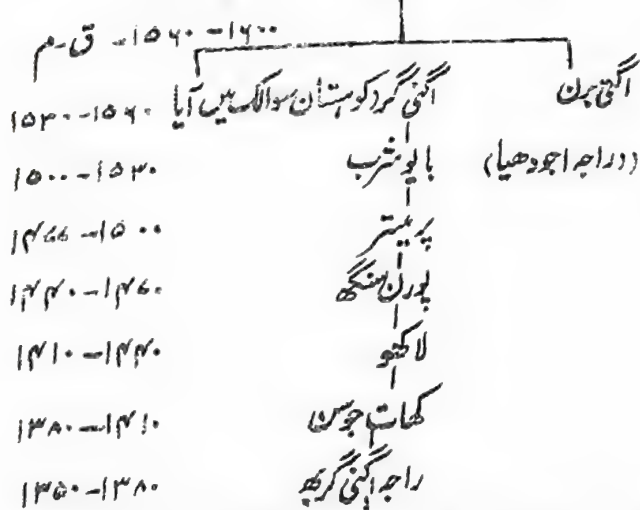 ۱۶۰۰-۱۵۶۰ ق-م
اگنی برن اگنی گر (کوہستان سوالک میں آیا ۱۵۶۰-۱۵۳۰
(دراجہ اجودھیا) بایوشرب ۱۵۳۰-۱۵۰۰
پرمیتر ۱۵۰۰-۱۴۷۷
پورن سنگھ ۱۴۷۰-۱۴۴۰
لاکتو ۱۴۴۰-۱۴۱۰
کھات جوسن ۱۴۱۰-۱۳۸۰
راجہ اگنی گربھ ۱۳۸۰-۱۳۵۰